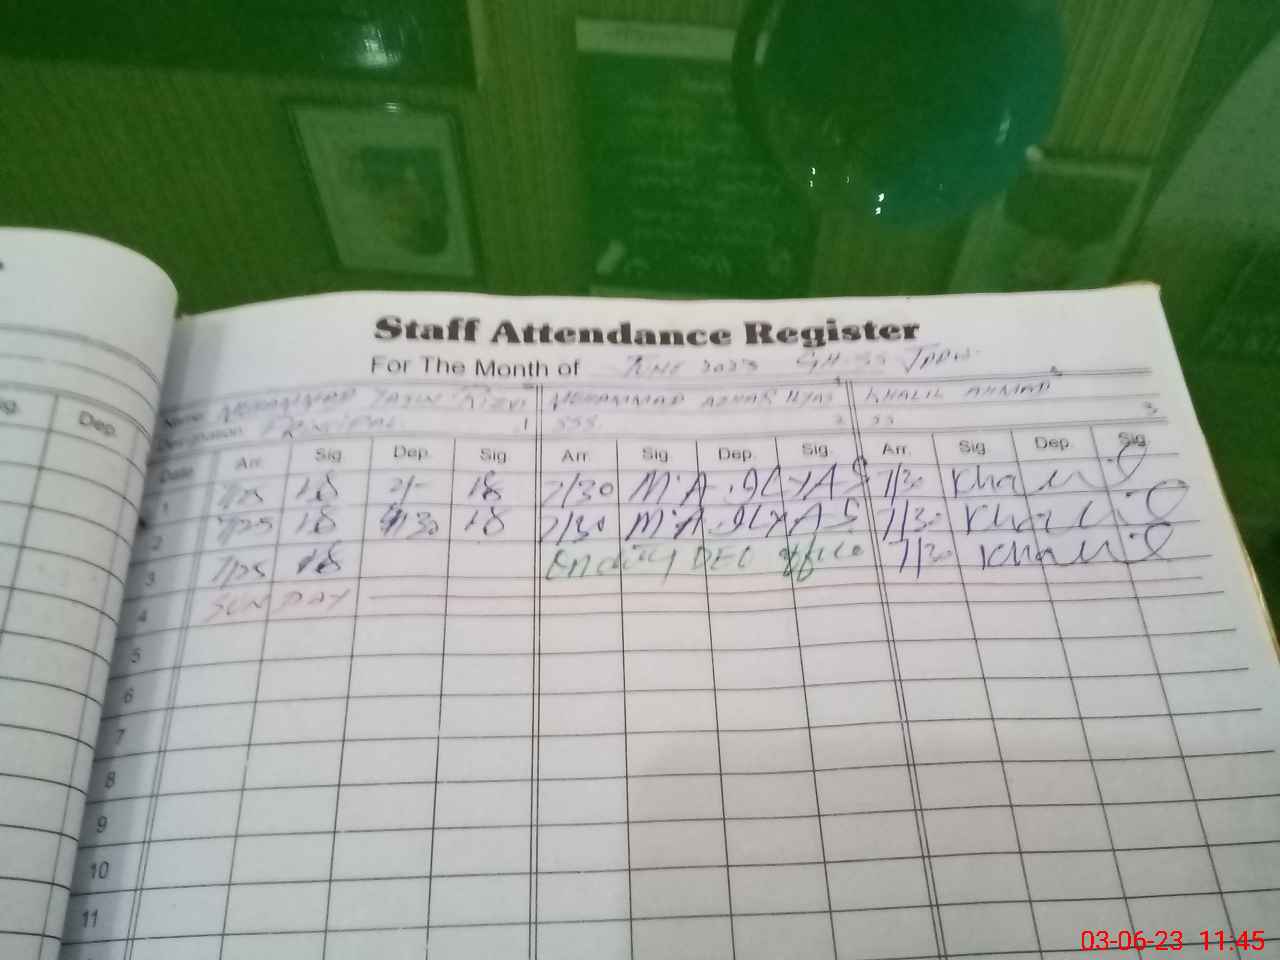 Staff Attendance Register
For The Month of JUNE 2023 GHSS
Sig. Dep.
Name MUHAMMAD RIZVI MUHAMMAD AZHAR ILYAS KHALIL AHMAD
Designation PRINCIPAL 1 SSS 2 SS 3
Date Arr. Sig. Dep. Sig. Arr. Sig. Dep. Sig. Arr. Sig. Dep. Sig.
1 7/25 2/- 7/30 M.A.ILYAS 7/30 Khalil
2 7/25 7/30 M.A.ILYAS 7/30 Khalil
3 7/25 DEO office 7/30 Khalil
4 SUNDAY
5
6
7
8
9
10
11
03-06-23 11:45